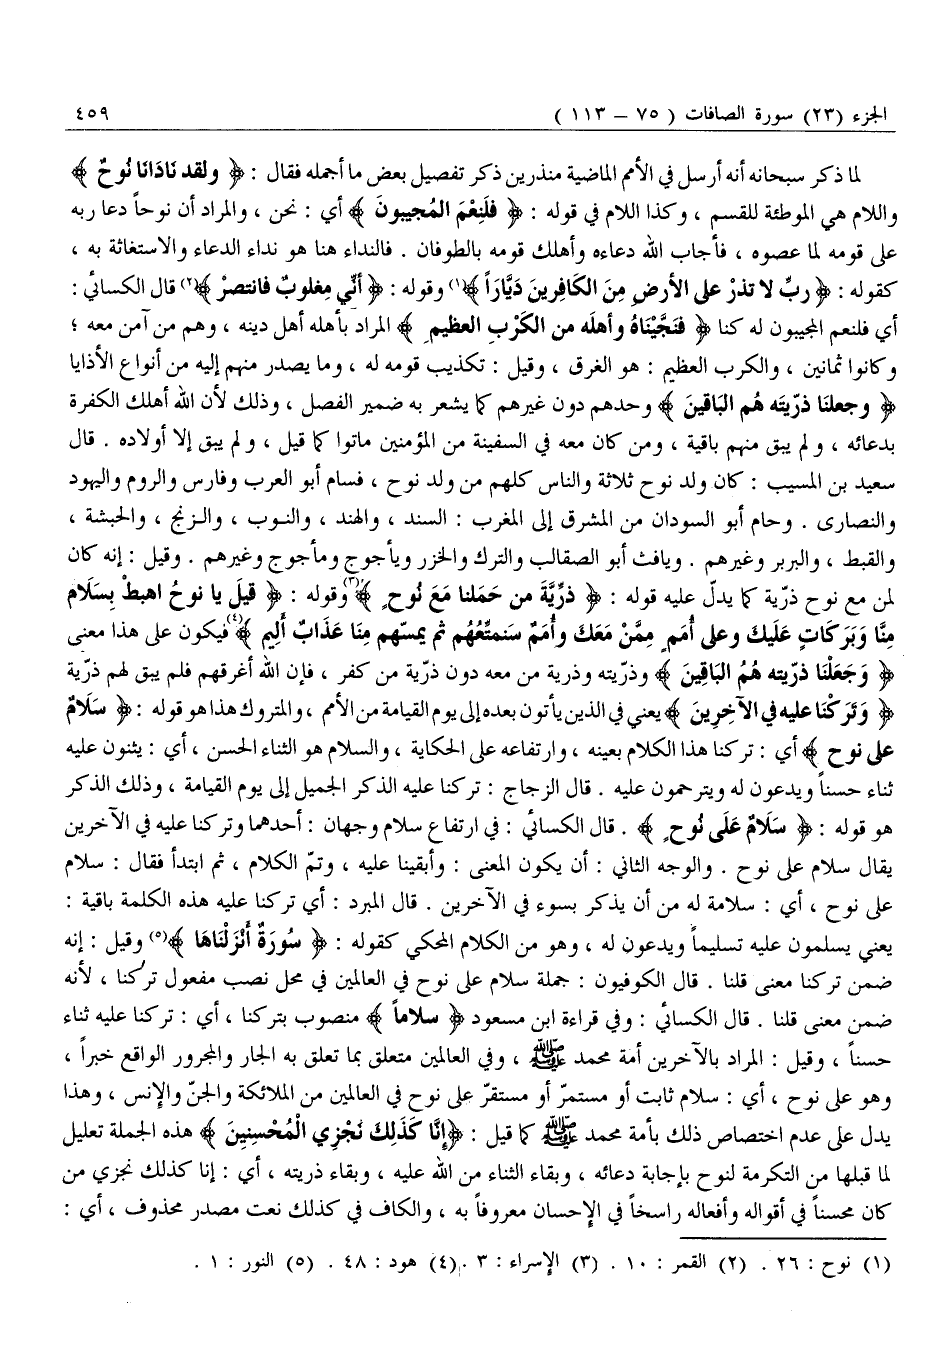 الجزء (٢٣) سورة الصافات ( ٧٥ – ١١٣ ) ٤٥٩
لما ذكر سبحانه أنه أرسل في الأمم الماضية منذرين ذكر تفصيل بعض ما أجمله فقال : ﴿ ولقد نَادَانَا نُوحٌ ﴾
واللام هي الموطئة للقسم ، وكذا اللام في قوله : ﴿ فلَنِعْمَ المُجيبونَ ﴾ أي : نحن ، والمراد أن نوحاً دعا ربه
على قومه لما عصوه ، فأجاب الله دعاءه وأهلك قومه بالطوفان . فالنداء هنا هو نداء الدعاء والاستغاثة به ،
كقوله : ﴿ ربِّ لا تذرْ على الأرضِ مِنَ الكَافِرِينَ دَيَّاراً ﴾(١) وقوله : ﴿ أنّي مغلوبٌ فانتصرْ ﴾(٢) قال الكسائي :
أي فلنعم المجيبون له كنا ﴿ فنَجَّيْنَاهُ وأهلَه من الكَرْبِ العظيمِ ﴾ المراد بأهله أهل دينه ، وهم من آمن معه ؛
وكانوا ثمانين ، والكرب العظيم : هو الغرق ، وقيل : تكذيب قومه له ، وما يصدر منهم إليه من أنواع الأذايا
﴿ وجعلنَا ذرّيته هُم البَاقينَ ﴾ وحدهم دون غيرهم كما يشعر به ضمير الفصل ، وذلك لأن الله أهلك الكفرة
بدعائه ، ولم يبق منهم باقية ، ومن كان معه في السفينة من المؤمنين ماتوا كما قيل ، ولم يبق إلا أولاده . قال
سعيد بن المسيب : كان ولد نوح ثلاثة والناس كلهم من ولد نوح ، فسام أبو العرب وفارس والروم واليهود
والنصارى . وحام أبو السودان من المشرق إلى المغرب : السند ، والهند ، والنـوب ، والـزنج ، والحبشة ،
والقبط ، والبربر وغيرهم . ويافث أبو الصقالب والترك والخزر ويأجوج ومأجوج وغيرهم . وقيل : إنه كان
لمن مع نوح ذرّية كما يدلّ عليه قوله : ﴿ ذرِّيَّةَ من حَمَلنا مَعَ نُوحٍ ﴾(٣) وقوله : ﴿ قيلَ يا نوحُ اهبطْ بِسَلَام
مِنَّا وَبَرَكَاتٍ عَلَيكَ وعلى أُمَمٍ مِمَّنْ مَعَكَ وأُمَمٌ سَنمتِّعُهُم ثم يمسّهم مِنَا عَذَابٌ أَلِيم ﴾(٤) فيكون على هذا معنى
﴿ وَجَعَلْنَا ذرّيته هُمُ البَاقِينَ ﴾ وذرّيته وذرية من معه دون ذرّية من كفر ، فإن الله أغرقهم فلم يبق لهم ذرّية
﴿ وَتَرَكْنا عليه في الآخِرِينَ ﴾ يعني في الذين يأتون بعده إلى يوم القيامة من الأمم ، والمتروك هذا هو قوله : ﴿ سَلَامٌ
على نوحٍ ﴾ أي : تركنا هذا الكلام بعينه ، وارتفاعه على الحكاية ، والسلام هو الثناء الحسن ، أي : يثنون عليه
ثناء حسناً ويدعون له ويترحمون عليه . قال الزجاج : تركنا عليه الذكر الجميل إلى يوم القيامة ، وذلك الذكر
هو قوله : ﴿ سَلَامٌ عَلَى نُوحٍ ﴾ . قال الكسائي : في ارتفاع سلام وجهان : أحدهما وتركنا عليه في الآخرين
يقال سلام على نوح . والوجه الثاني : أن يكون المعنى : وأبقينا عليه ، وتمّ الكلام ، ثم ابتدأ فقال : سلام
على نوح ، أي : سلامة له من أن يذكر بسوء في الآخرين . قال المبرد : أي تركنا عليه هذه الكلمة باقية :
يعني يسلمون عليه تسليماً ويدعون له ، وهو من الكلام المحكي كقوله : ﴿ سُورَةٌ أَنْزَلْنَاهَا ﴾(٥) وقيل : إنه
ضمن تركنا معنى قلنا . قال الكوفيون : جملة سلام على نوح في العالمين في محل نصب مفعول تركنا ، لأنه
ضمن معنى قلنا . قال الكسائي : وفي قراءة ابن مسعود ﴿ سلاماً ﴾ منصوب بتركنا ، أي : تركنا عليه ثناء
حسناً ، وقيل : المراد بالآخرين أمة محمد ﷺ ، وفي العالمين متعلق بما تعلق به الجار والمجرور الواقع خبراً ،
وهو على نوح ، أي : سلام ثابت أو مستمرّ أو مستقرّ على نوح في العالمين من الملائكة والجنّ والإنس ، وهذا
يدل على عدم اختصاص ذلك بأمة محمد ﷺ كما قيل : ﴿ إنَّا كَذَلِكَ نَجْزِي الْمُحْسنِينَ ﴾ هذه الجملة تعليل
لما قبلها من التكرمة لنوح بإجابة دعائه ، وبقاء الثناء من الله عليه ، وبقاء ذريته ، أي : إنا كذلك نجزي من
كان محسناً في أقواله وأفعاله راسخاً في الإحسان معروفاً به ، والكاف في كذلك نعت مصدر محذوف ، أي :
(١) نوح : ٢٦ . (٢) القمر : ١٠ . (٣) الإسراء : ٣ . (٤) هود : ٤٨ . (٥) النور : ١ .